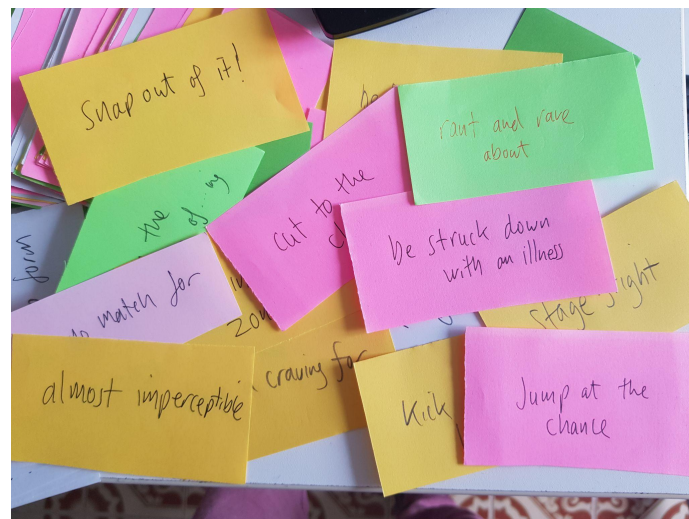 Snap out of it!
rant and rave
about
the
of ...ing
cut to the
be struck down
with an illness
match for
stage
craving for
almost imperceptible
Kick
Jump at the
chance